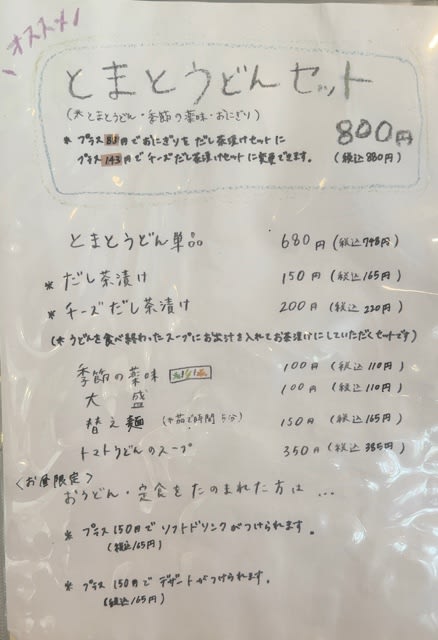 オススメ!
とまとうどんセット
(*とまとうどん・季節の薬味・おにぎり)
800円
(税込880円)
* プラス 83円でおにぎりをだし茶漬けセットに
プラス 143円でチーズだし茶漬けセットに変更できます。
とまとうどん単品 680円(税込748円)
* だし茶漬け 150円(税込165円)
* チーズだし茶漬け 200円(税込220円)
(*うどんを食べ終わったスープにお出汁を入れてお茶漬けにしていただくセットです)
季節の薬味 100円(税込110円)
大盛 100円(税込110円)
替え麺 (*茹で時間 5分) 150円(税込165円)
トマトうどんのスープ 350円(税込385円)
〈お昼限定〉
おうどん・定食をたのまれた方は…
* プラス150円でソフトドリンクがつけられます。
(税込165円)
* プラス150円でデザートがつけられます。
(税込165円)